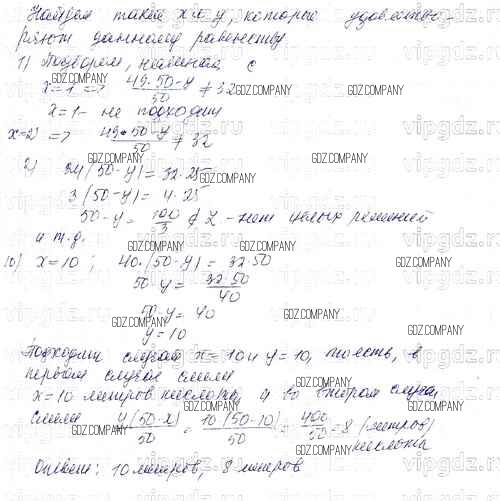 Найдем такие x и y, которые удовлетво-
ряют данному равенству.
1) Подберем, начиная с
x=1 => 49·50-y / 50 ≠ 32
x=1 - не подходит
x=2 => 49·50-y / 50 ≠ 32
24(50-y)=32·25
3(50-y)=4·25
50-y= 100/3 ∉ Z - нет целых решений
и т.д.
10) x=10; 40·(50-y)=32·50
50-y= 32·50/40
50-y= 40
y=10
Подходит случай x=10 и y=10, то есть, в
первом случае слили
x=10 литров кислоты, а во втором случае
слили 4(50-2)/50 = 10(50-10)/50 = 400/50 = 8 (литров)
кислоты
Ответ: 10 литров, 8 литров
GDZ.COMPANY
vipgdz.ru